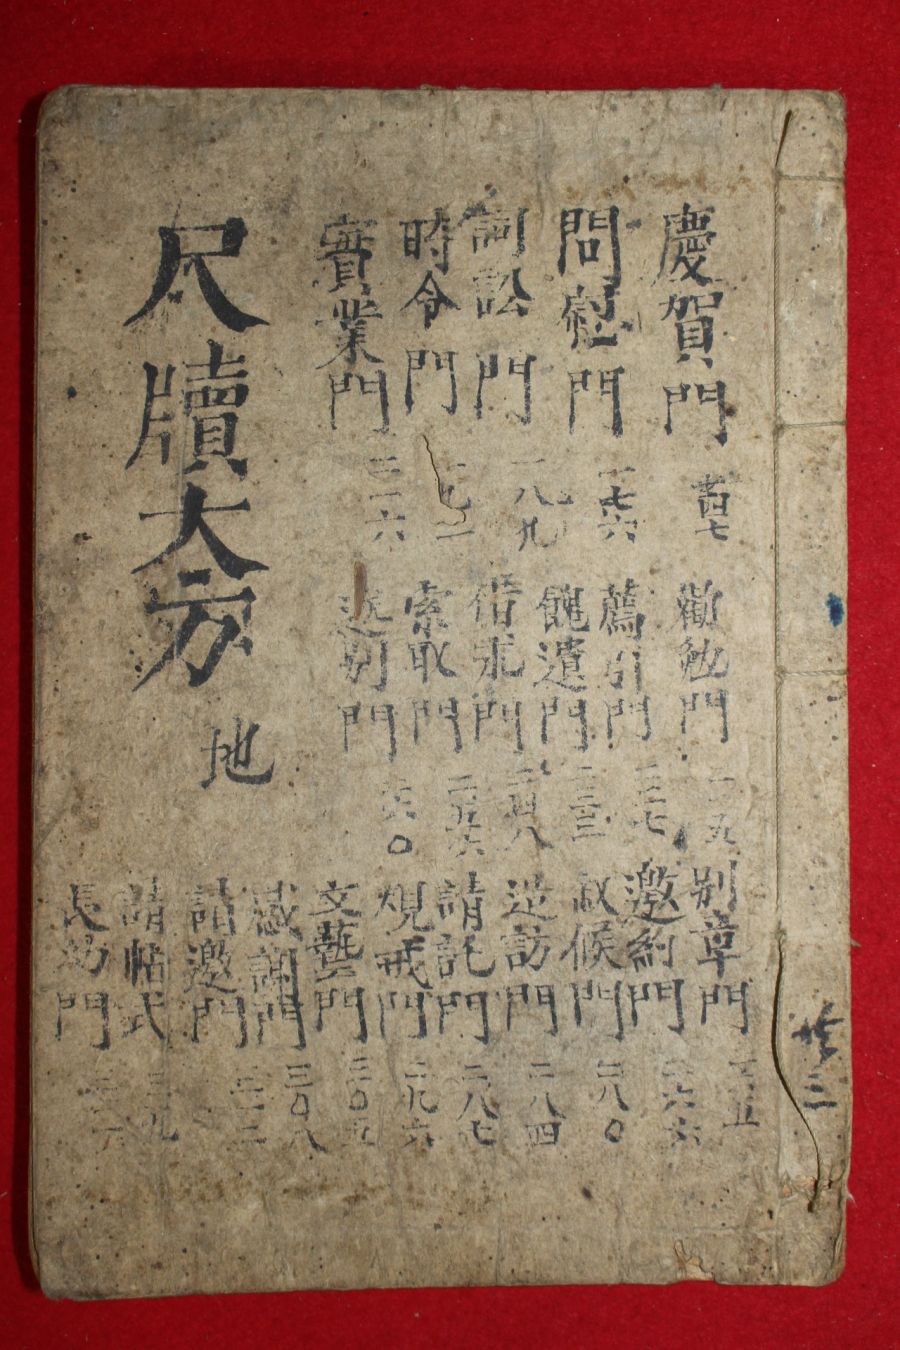 慶賀門
問慰門 一七六
詞訟門 一八九
時令門
實業門 二一六
勸勉門 二二五
薦引門 二二七
餽遺門 二三三
借乘門 二四八
索取門 二五六
送別門 二六〇
別章門
邀約門 二六六
敍候門 二八〇
造訪門 二八四
請託門 二八七
規戒門 二九六
文藝門 三〇五
感謝門 三〇八
請邀門
請帖式 三一九
長幼門
尺牘大方
地
共三